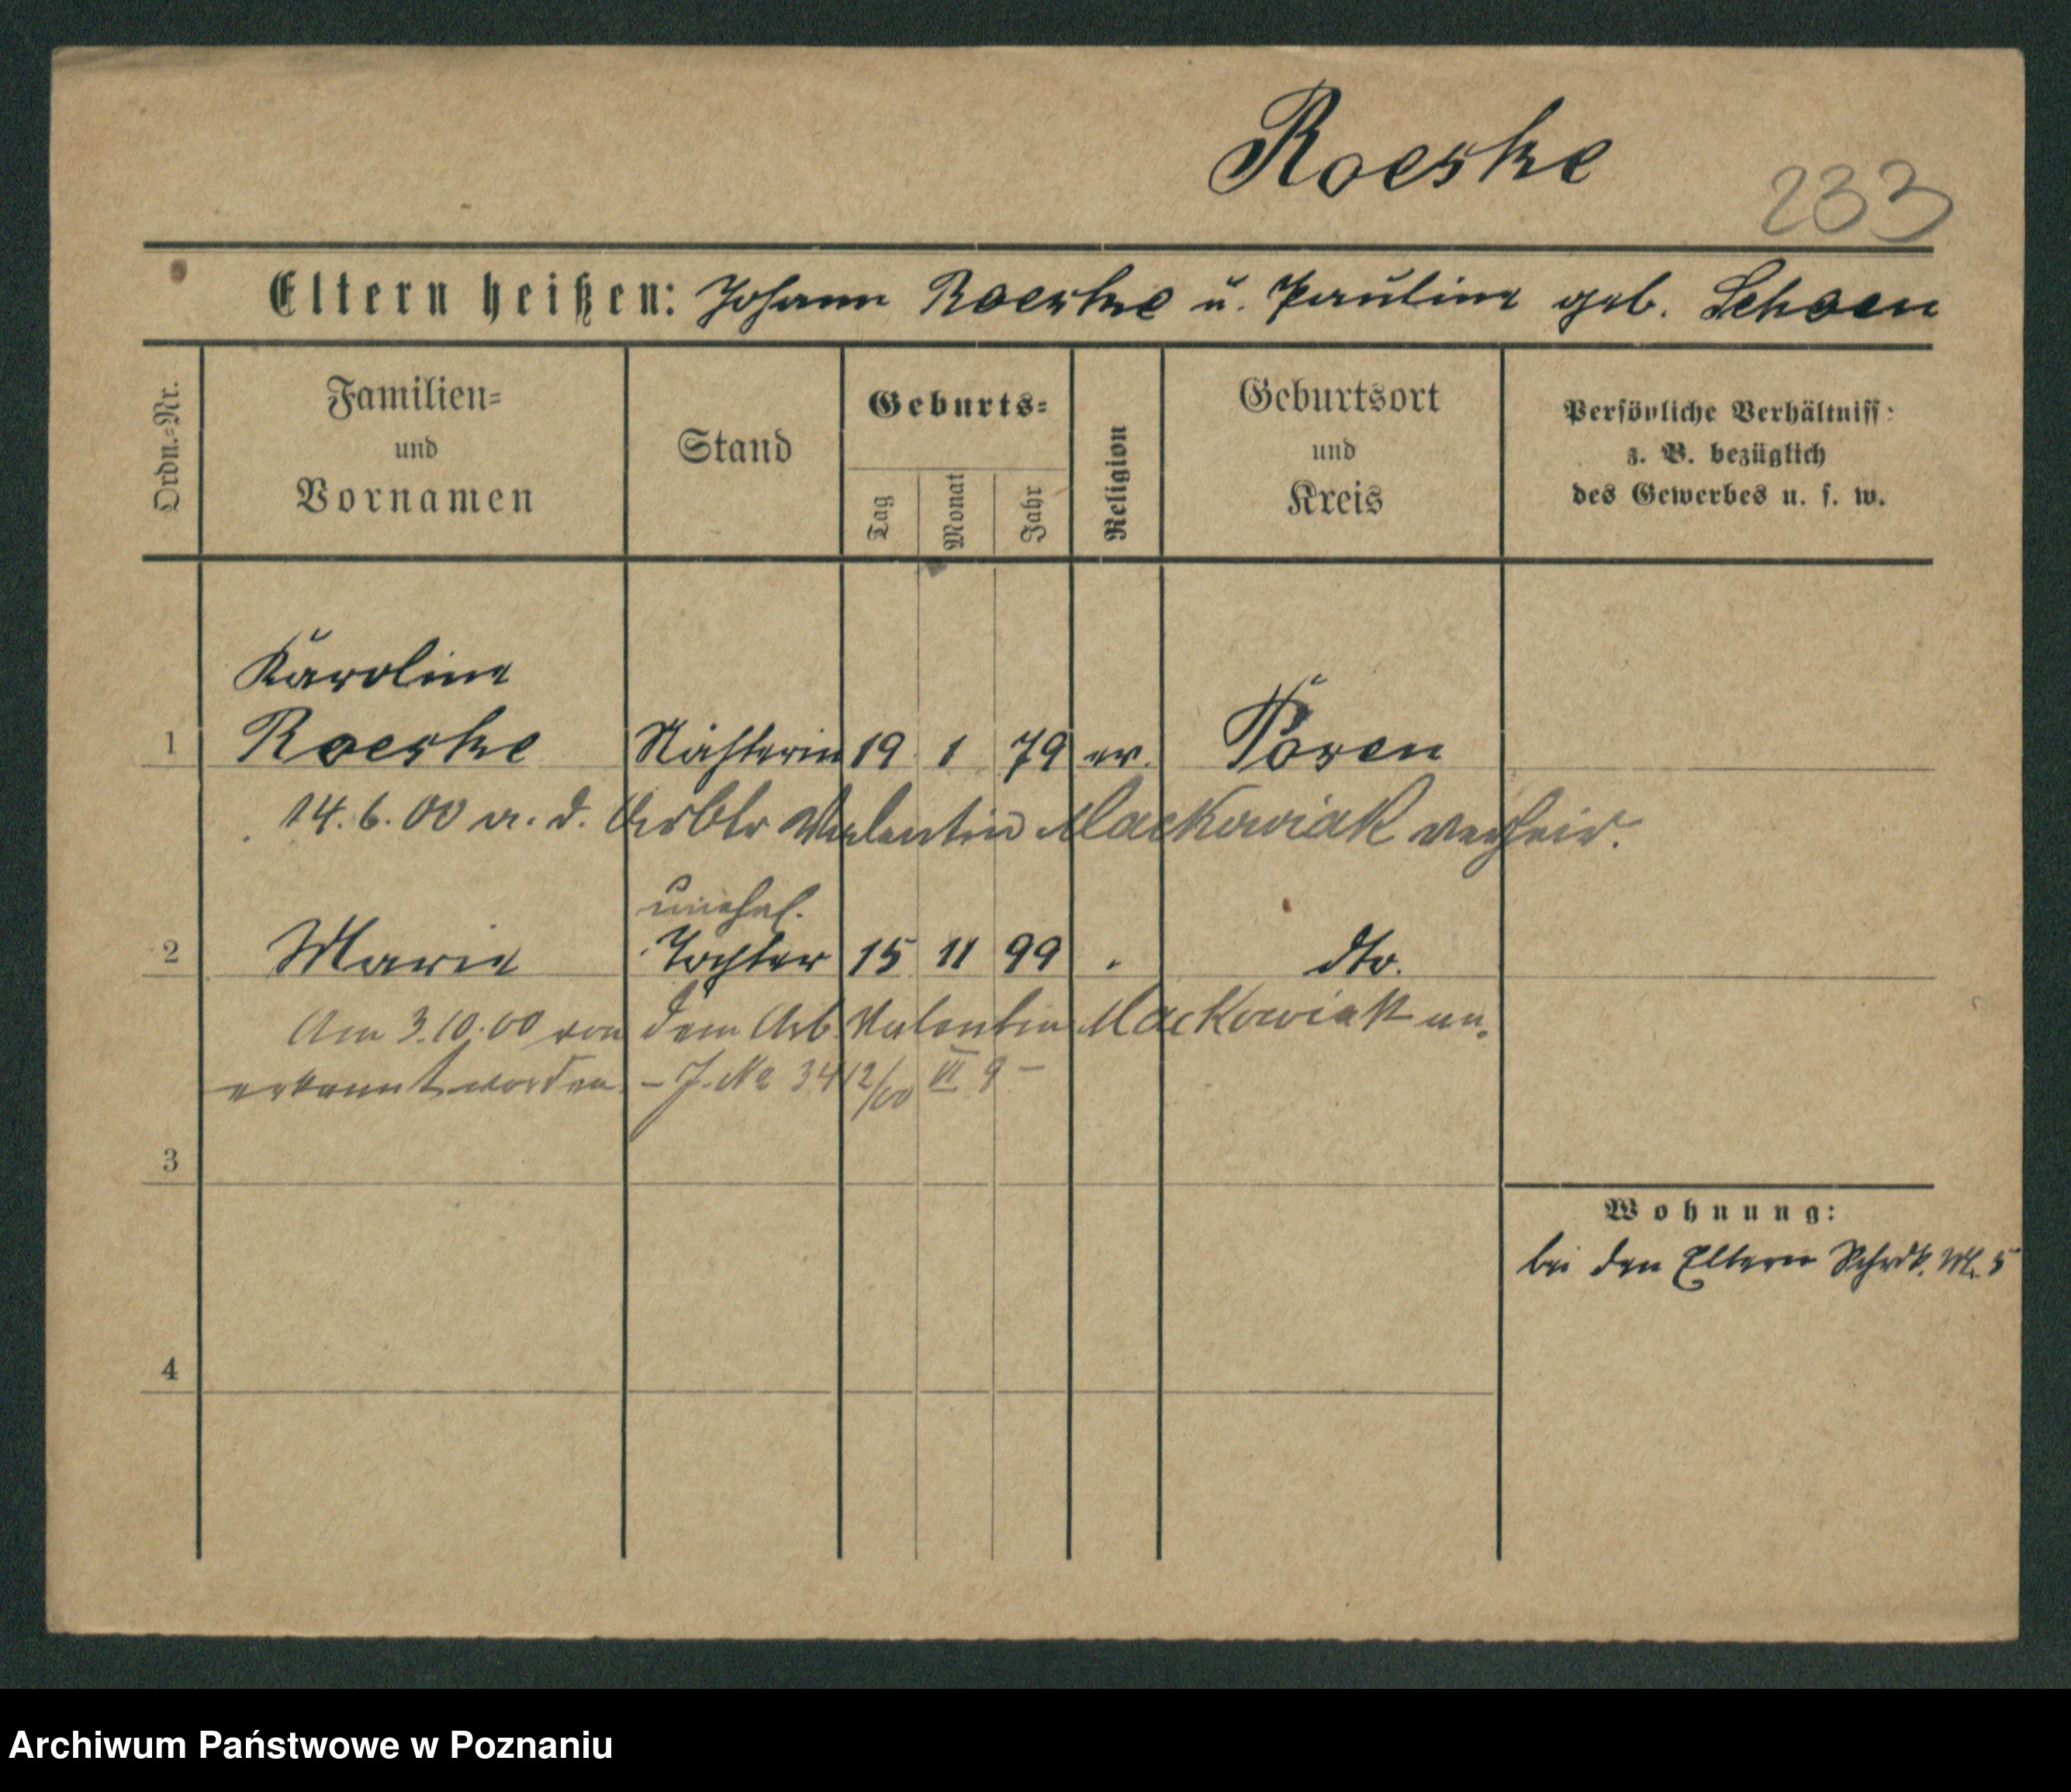 Roeske
233
Eltern heißen: Johann Roeske u. Pauline geb. Schoen
Ordn.=Nr.
Familien=
und
Vornamen
Stand
Geburts=
Tag
Monat
Jahr
Religion
Geburtsort
und
Kreis
Persönliche Verhältniss:
z. B. bezüglich
des Gewerbes u. s. w.
Karoline
1 Roeske Nähterin 19 1 79 ev. Posen
14. 6. 00 a. d. Arbtr Valentin Mackowiak verheir.
unehel.
2 Marie Tochter 15 11 99 " dto.
Am 3.10.00 von dem Arb. Valentin Mackowiak an-
erkannt worden – J. No 3412/00 VI 9 –
3
Wohnung:
bei den Eltern 5
4
Archiwum Państwowe w Poznaniu